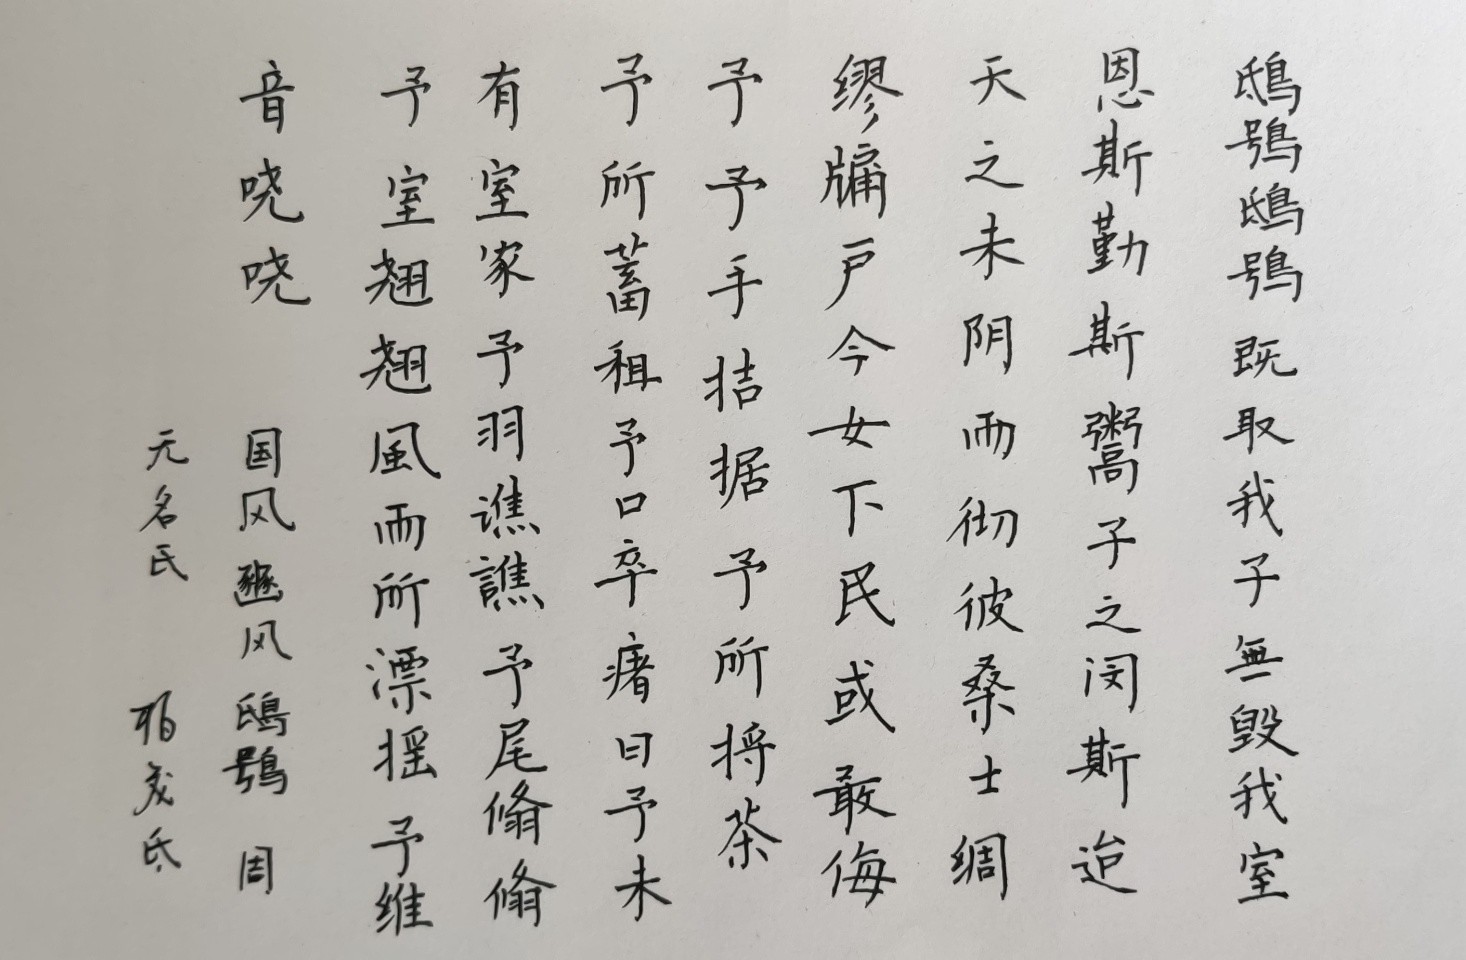 鴟鴞鴟鴞既取我子無毁我室
恩斯勤斯鬻子之闵斯迨
天之未阴雨彻彼桑士绸
缪牖户今女下民或敢侮
予予手拮据予所捋荼
予所蓄租予口卒瘏曰予未
有室家予羽谯譙予尾翛翛
予室翘翘風雨所漂摇予维
音哓哓 国风豳风鴟鴞 周
无名氏